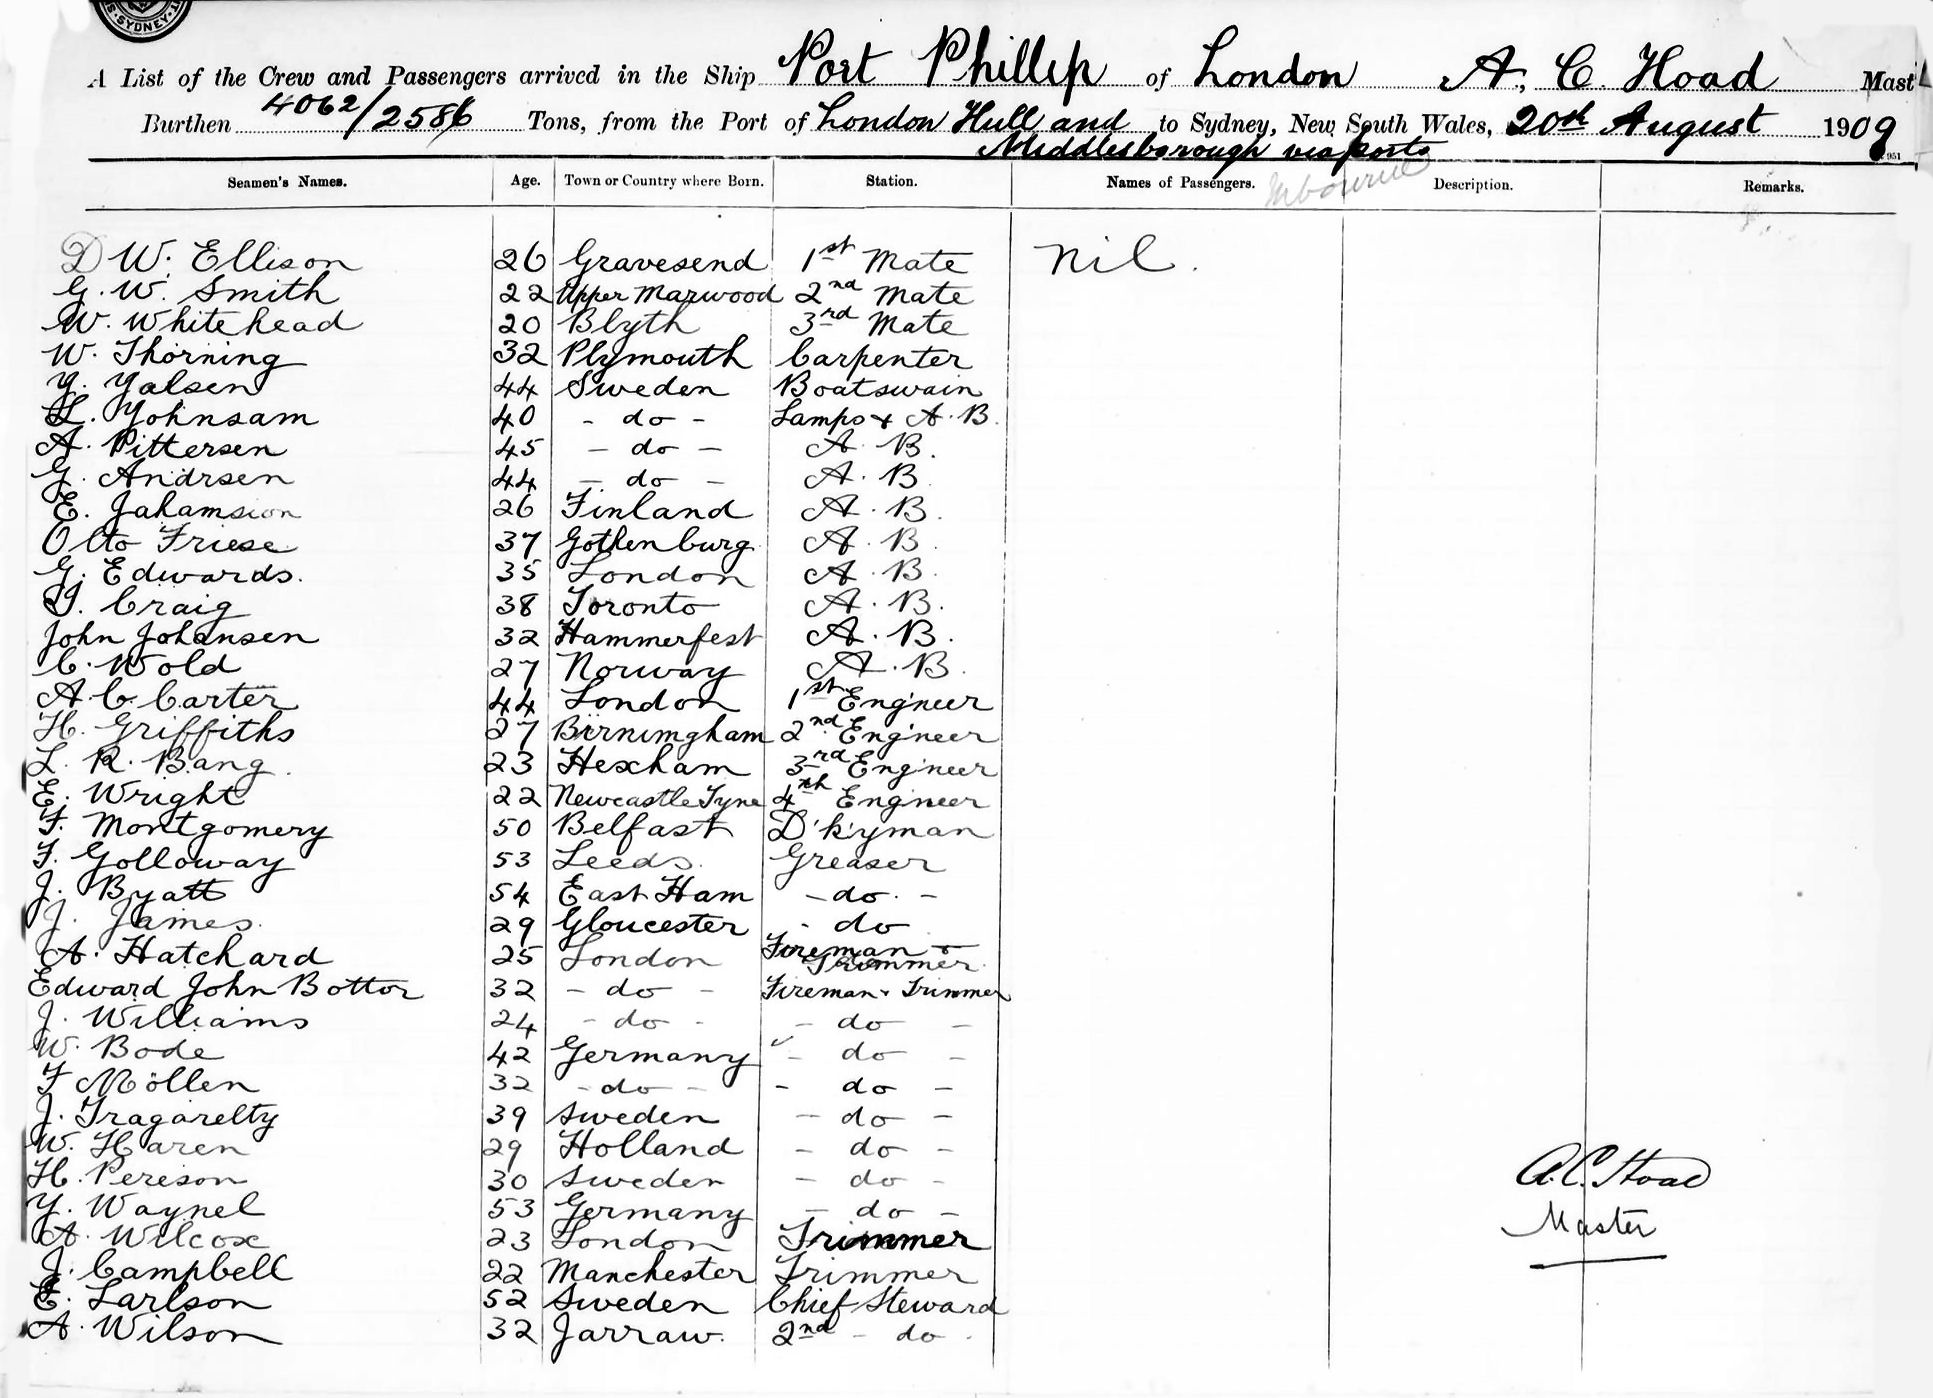 SYDNEY
A List of the Crew and Passengers arrived in the Ship Port Phillip of London A. C. Hoad Mast
Burthen 4062/2586 Tons, from the Port of London Hull and to Sydney, New South Wales, 20th August 1909
Middlesborough via ports
Seamen's Names. Age. Town or Country where Born. Station. Names of Passengers. Description. Remarks.
D W. Ellison 26 Gravesend 1st Mate Nil.
G. W. Smith 22 Upper Marwood 2nd Mate
W. Whitehead 20 Blyth 3rd Mate
W. Thorning 32 Plymouth Carpenter
Y. Yalsen 44 Sweden Boatswain
L. Yohnsam 40 - do - Lamps & A. B.
A. Pittersen 45 - do - A. B.
G. Andrsen 44 - do - A. B.
E. Jahamsion 26 Finland A. B.
Otto Friese 37 Gothenburg A. B.
G. Edwards. 35 London A. B.
J. Craig 38 Toronto A. B.
John Johansen 32 Hammerfest A. B.
C. Wold 27 Norway A. B.
A. C. Carter 44 London 1st Engineer
H. Griffiths 27 Birnimgham 2nd Engineer
L. R. Bang. 23 Hexham 3rd Engineer
E. Wright 22 Newcastle Tyne 4th Engineer
F. Montgomery 50 Belfast D'k'yman
F. Golloway 53 Leeds. Greaser
J. Byatt 54 East Ham - do. -
J. James. 29 Gloucester - do
A. Hatchard 25 London Fireman & Trimmer.
Edward John Bottor 32 - do - Fireman & Trimmer
J. Williams 24 - do - - do -
W. Bode 42 Germany - do -
F Möllen 32 - do - - do -
J. Tragarelty 39 Sweden - do -
W. Haren 29 Holland - do -
H. Pereson 30 Sweden - do -
Y. Waynel 53 Germany - do -
A. Wilcox 23 London Trimmer
J. Campbell 22 Manchester Trimmer
E. Larlson 52 Sweden Chief Steward
A. Wilson 32 Jarraw. 2nd - do -
A. C. Hoad
Master